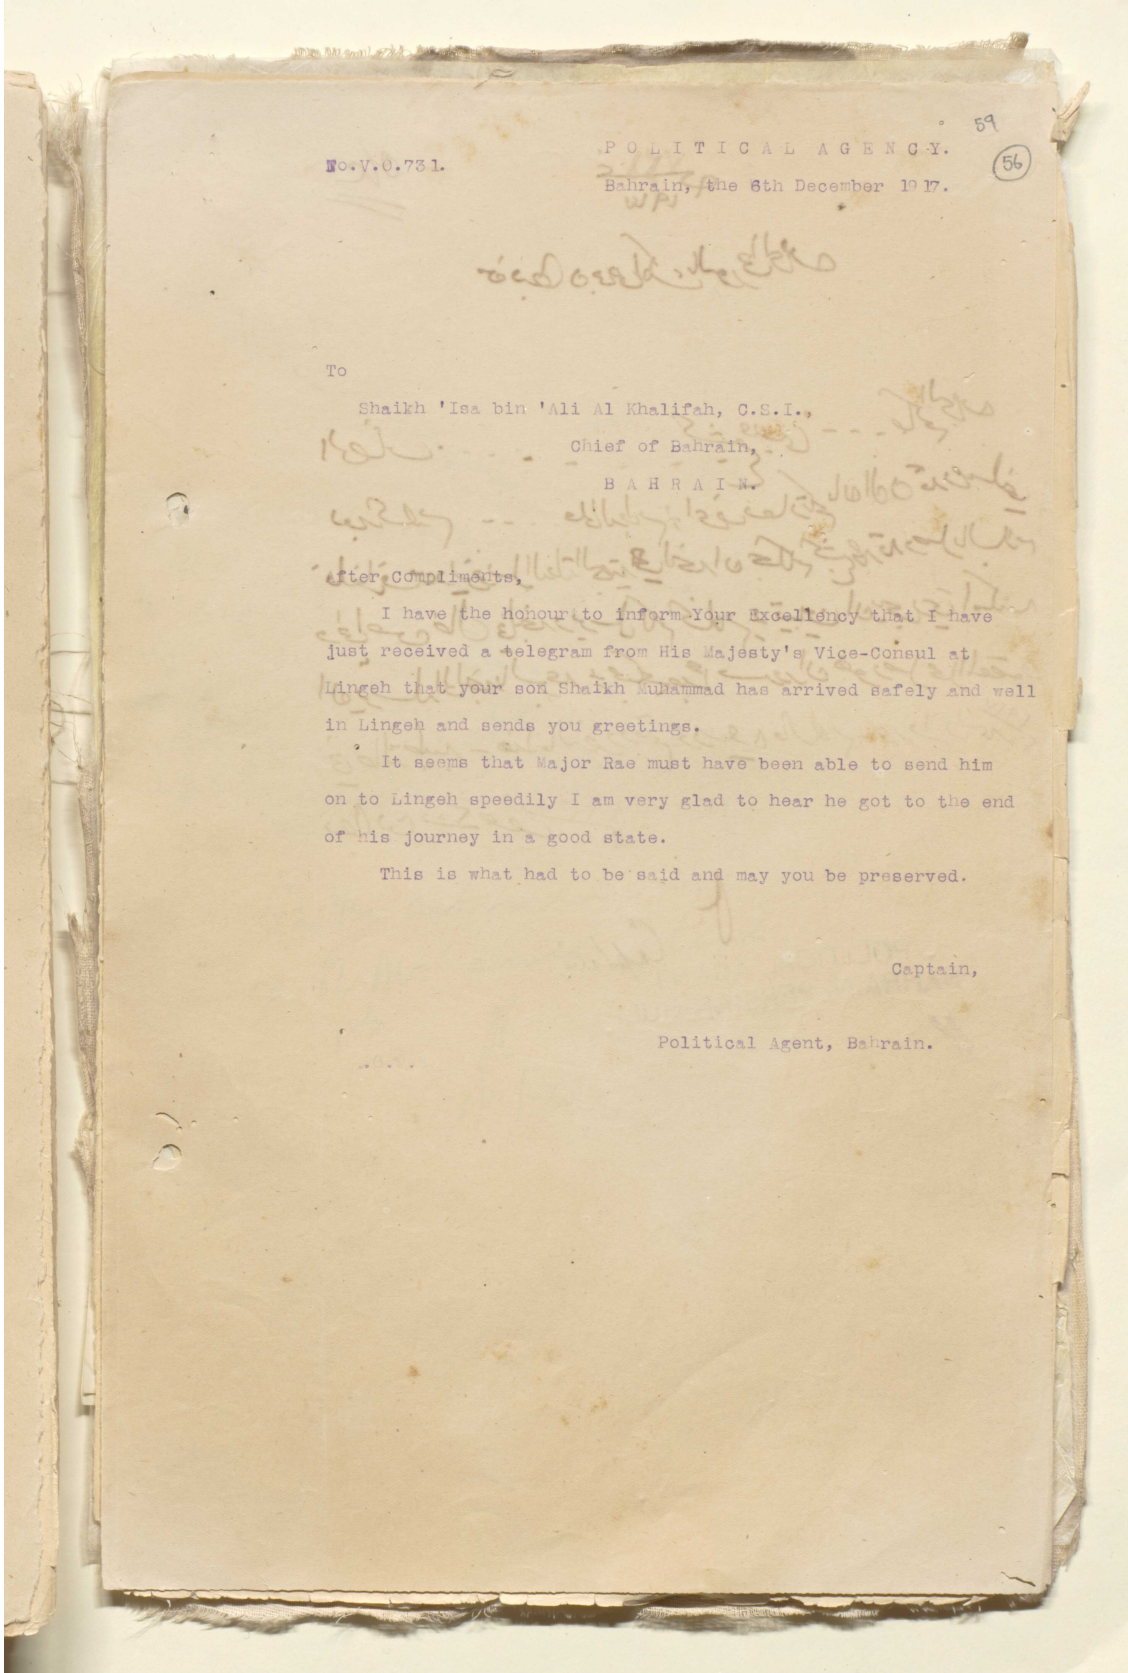 59
56
POLITICAL AGENCY.
No.V.O.731.
Bahrain, the 6th December 1917.
To
Shaikh 'Isa bin 'Ali Al Khalifah, C.S.I.,
Chief of Bahrain,
BAHRAIN.
After Compliments,
I have the honour to inform Your Excellency that I have
just received a telegram from His Majesty's Vice-Consul at
Lingeh that your son Shaikh Muhammad has arrived safely and well
in Lingeh and sends you greetings.
It seems that Major Rae must have been able to send him
on to Lingeh speedily I am very glad to hear he got to the end
of his journey in a good state.
This is what had to be said and may you be preserved.
Captain,
Political Agent, Bahrain.